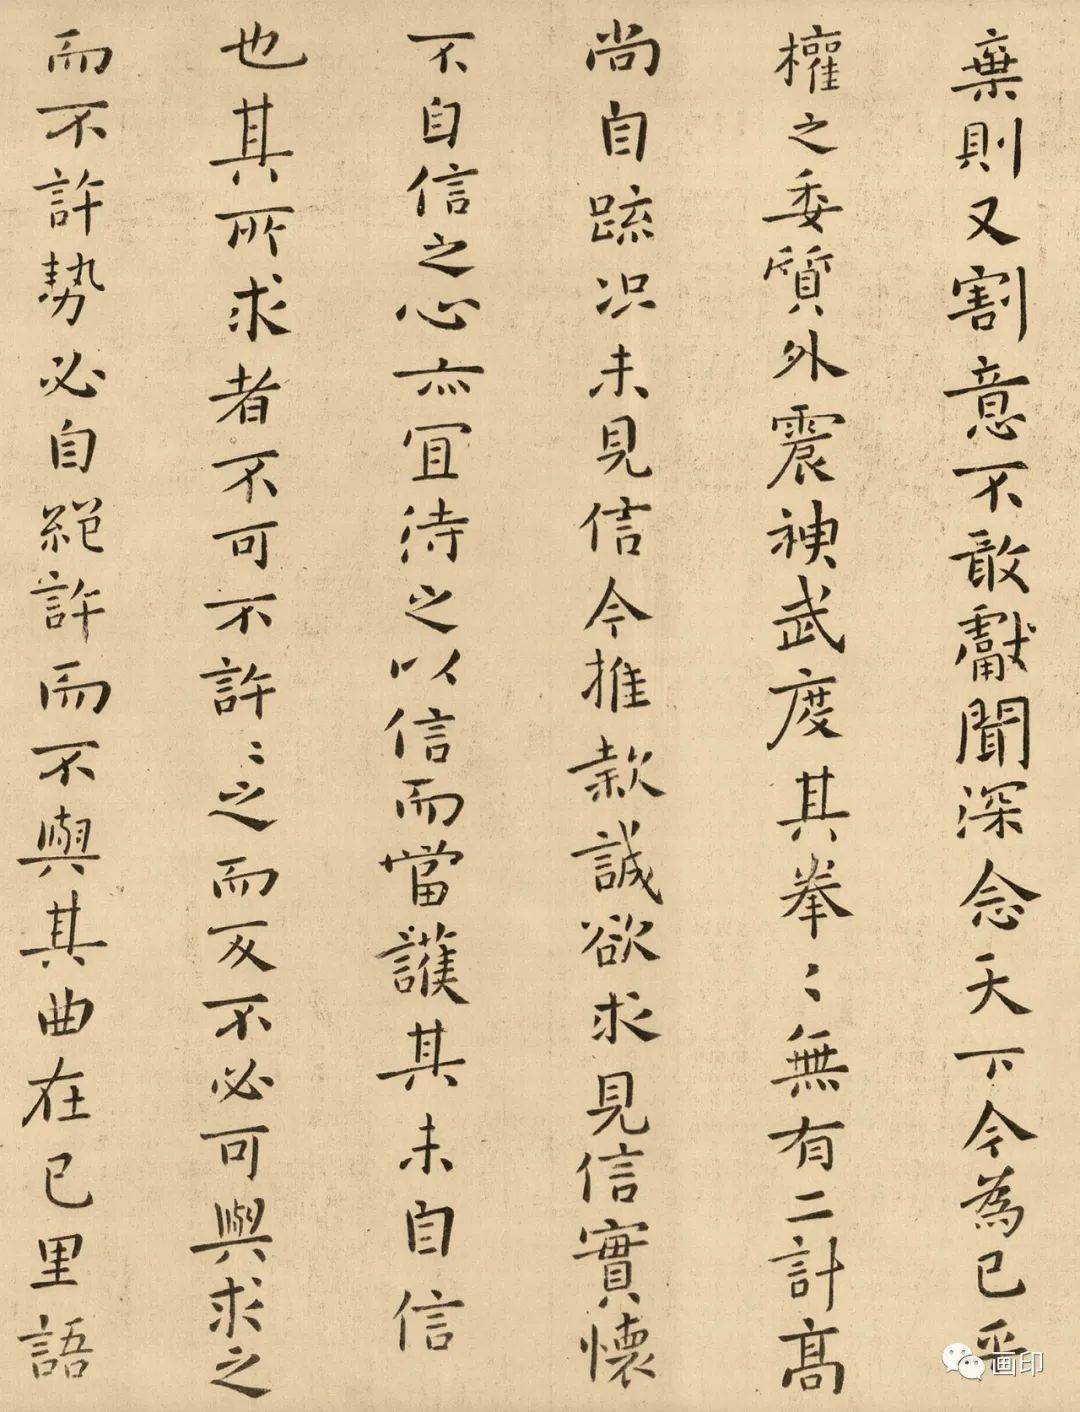 棄則又割意不敢獻聞深念天下今為已平
權之委質外震神武度其拳〻無有二計高
尚自疏况未見信今推款誠欲求見信實懷
不自信之心亦宜待之以信而當護其未自信
也其所求者不可不許〻之而反不必可與求之
而不許勢必自絕許而不與其曲在己里語
画印